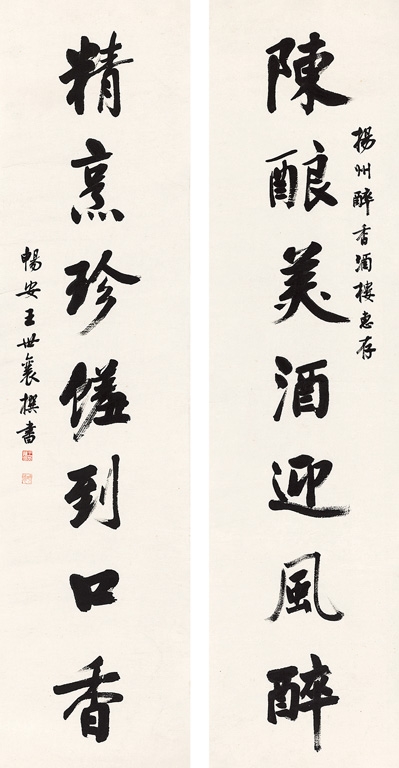 揚州醉香酒樓惠存
陳釀美酒迎風醉
精烹珍饈到口香
暢安王世襄撰書